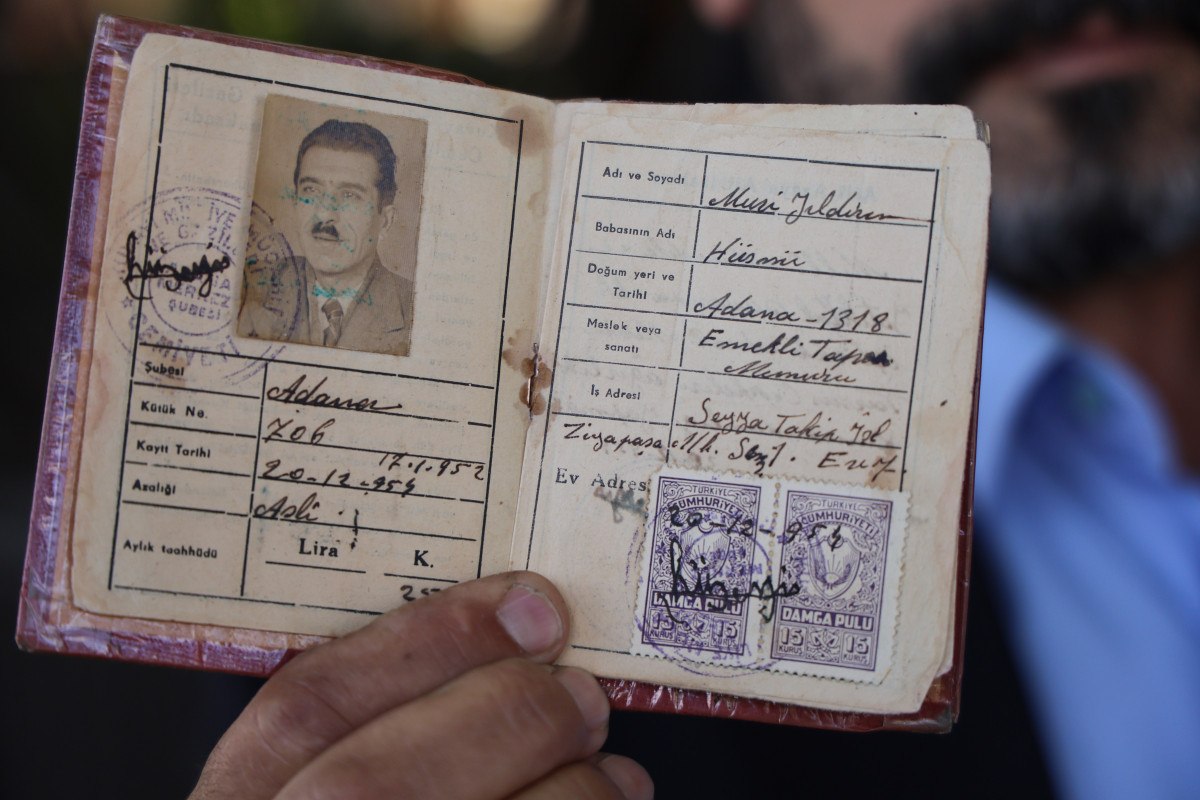 MİLİYE
VE GAZİL
MERKEZ
ŞUBESİ
CEMİYETİ
Şubesi Adana
Kütük No. 706
17.1.952
Kayıt Tarihi 20-12-954
Azalığı Asli
Aylık taahhüdü Lira K.
Adı ve Soyadı Musi Yıldırım
Babasının Adı Hüsnü
Doğum yeri ve
Tarihi Adana-1318
Meslek veya Emekli Tapu
sanatı Memuru
İş Adresi Seyza Takip
Ziyapaşa Mh.
Ev Adres
20-12-954
TÜRKİYE TÜRKİYE
CUMHURİYETİ CUMHURİYETİ
DAMGA PULU DAMGA PULU
15 15 15 15
KURUŞ KURUŞ KURUŞ KURUŞ